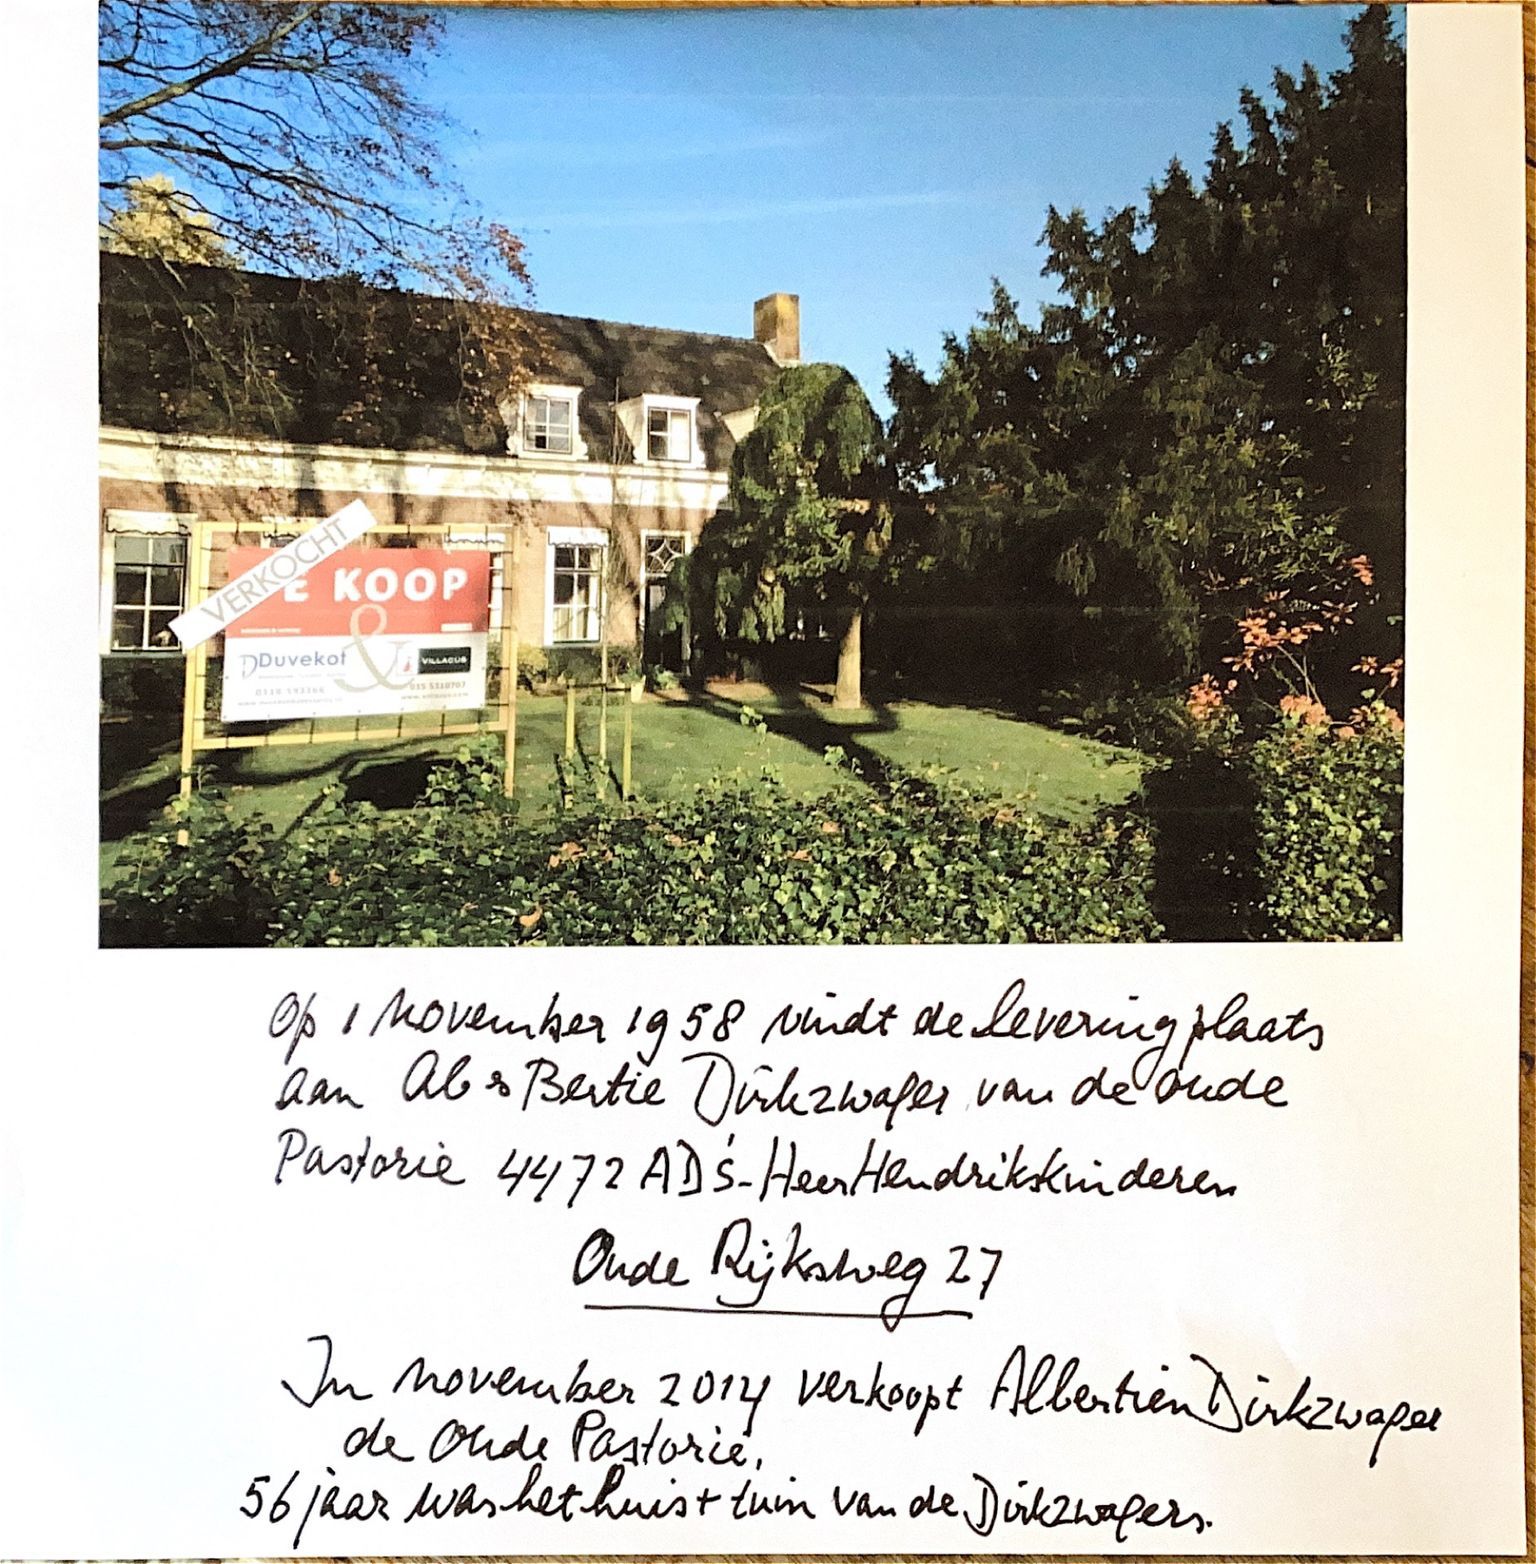 VERKOCHT
E KOOP
&
Duvekot
VILLACUS
015 5310707
Op 1 November 1958 vindt de levering plaats
aan Ab & Bertie Dirkzwager van de oude
Pastorie 4472 AD 's-Heer Hendrikskinderen
Oude Rijksweg 27
In November 2014 verkoopt Albertien Dirkzwager
de Oude Pastorie,
56 jaar was het huis + tuin van de Dirkzwagers.